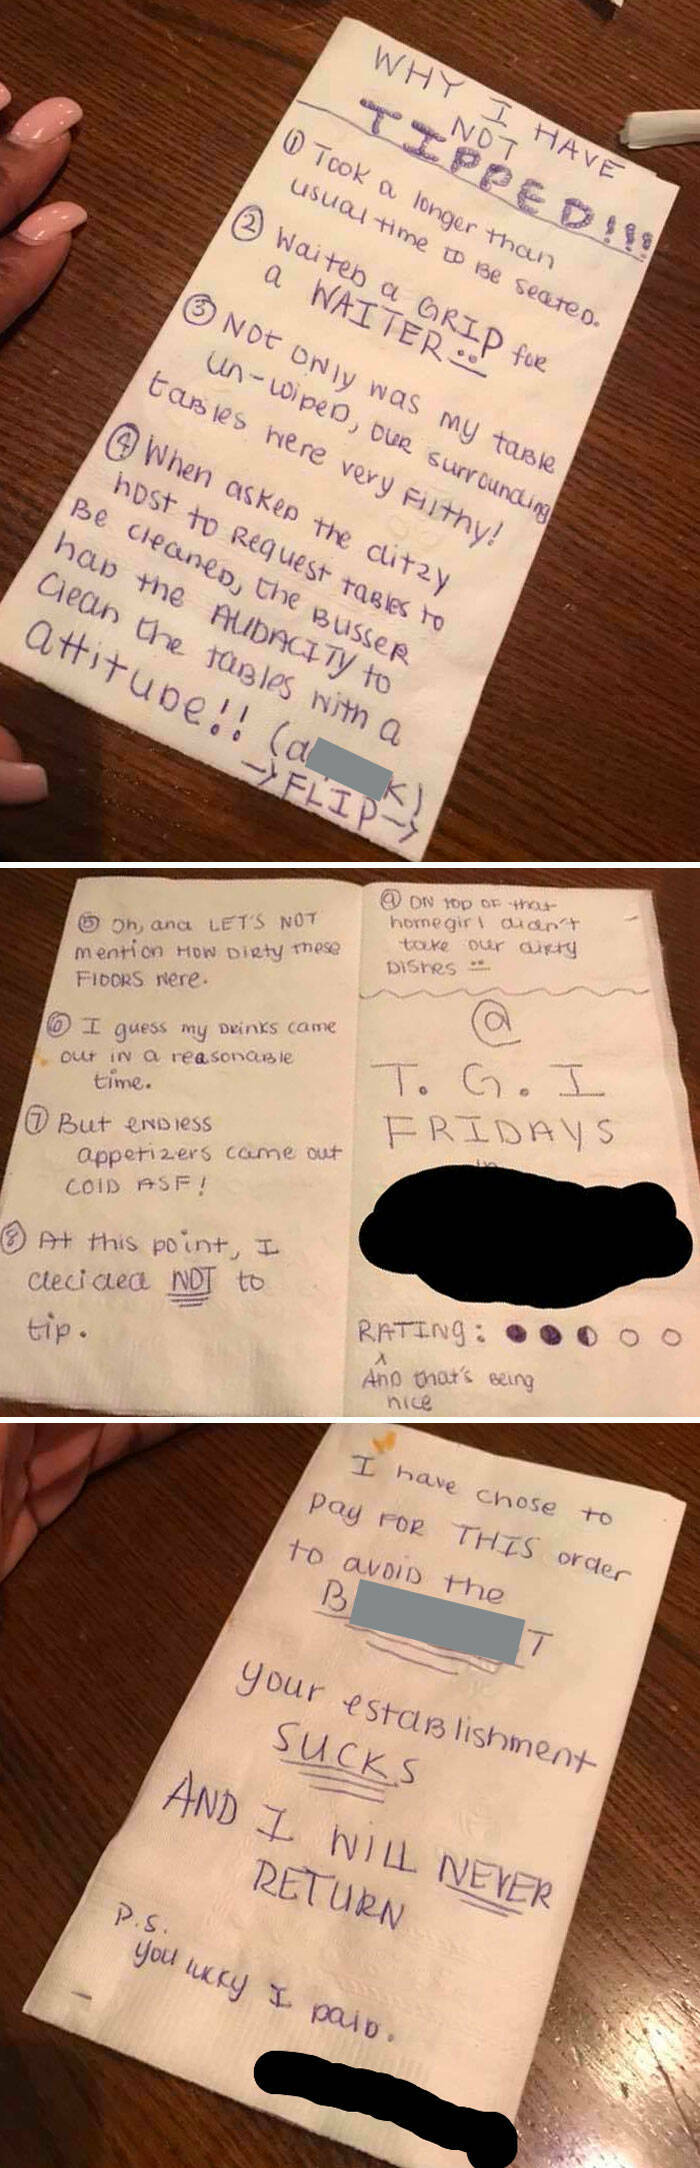 WHY I HAVE
NOT
TIPPED!!!
① Took a longer than
usual time to Be seated.
② Waited a GRIP for
a WAITER
③ Not only was my table
un-wiped, our surrounding
tables were very Filthy!
④ When asked the ditzy
host to Request tables to
Be cleaned, the Busser
had the AUDACITY to
clean the tables with a
attitude!! (a K)
→FLIP→
⑤ Oh, and LET'S NOT
mention HOW Dirty these
FlOORS were.
⑥ I guess my Drinks came
out in a reasonable
time.
⑦ But endless
appetizers came out
COlD ASF!
⑧ At this point, I
decided NOT to
tip.
⑨ ON top of that
homegirl didn't
take our dirty
Dishes
@
T. G. I
FRIDAYS
in
RATING:
And that's Being
nice
I have chose to
pay FOR THIS order
to avoid the
B T
your establishment
SUCKS
AND I WILL NEVER
RETURN
P.S.
you lucky I paid.